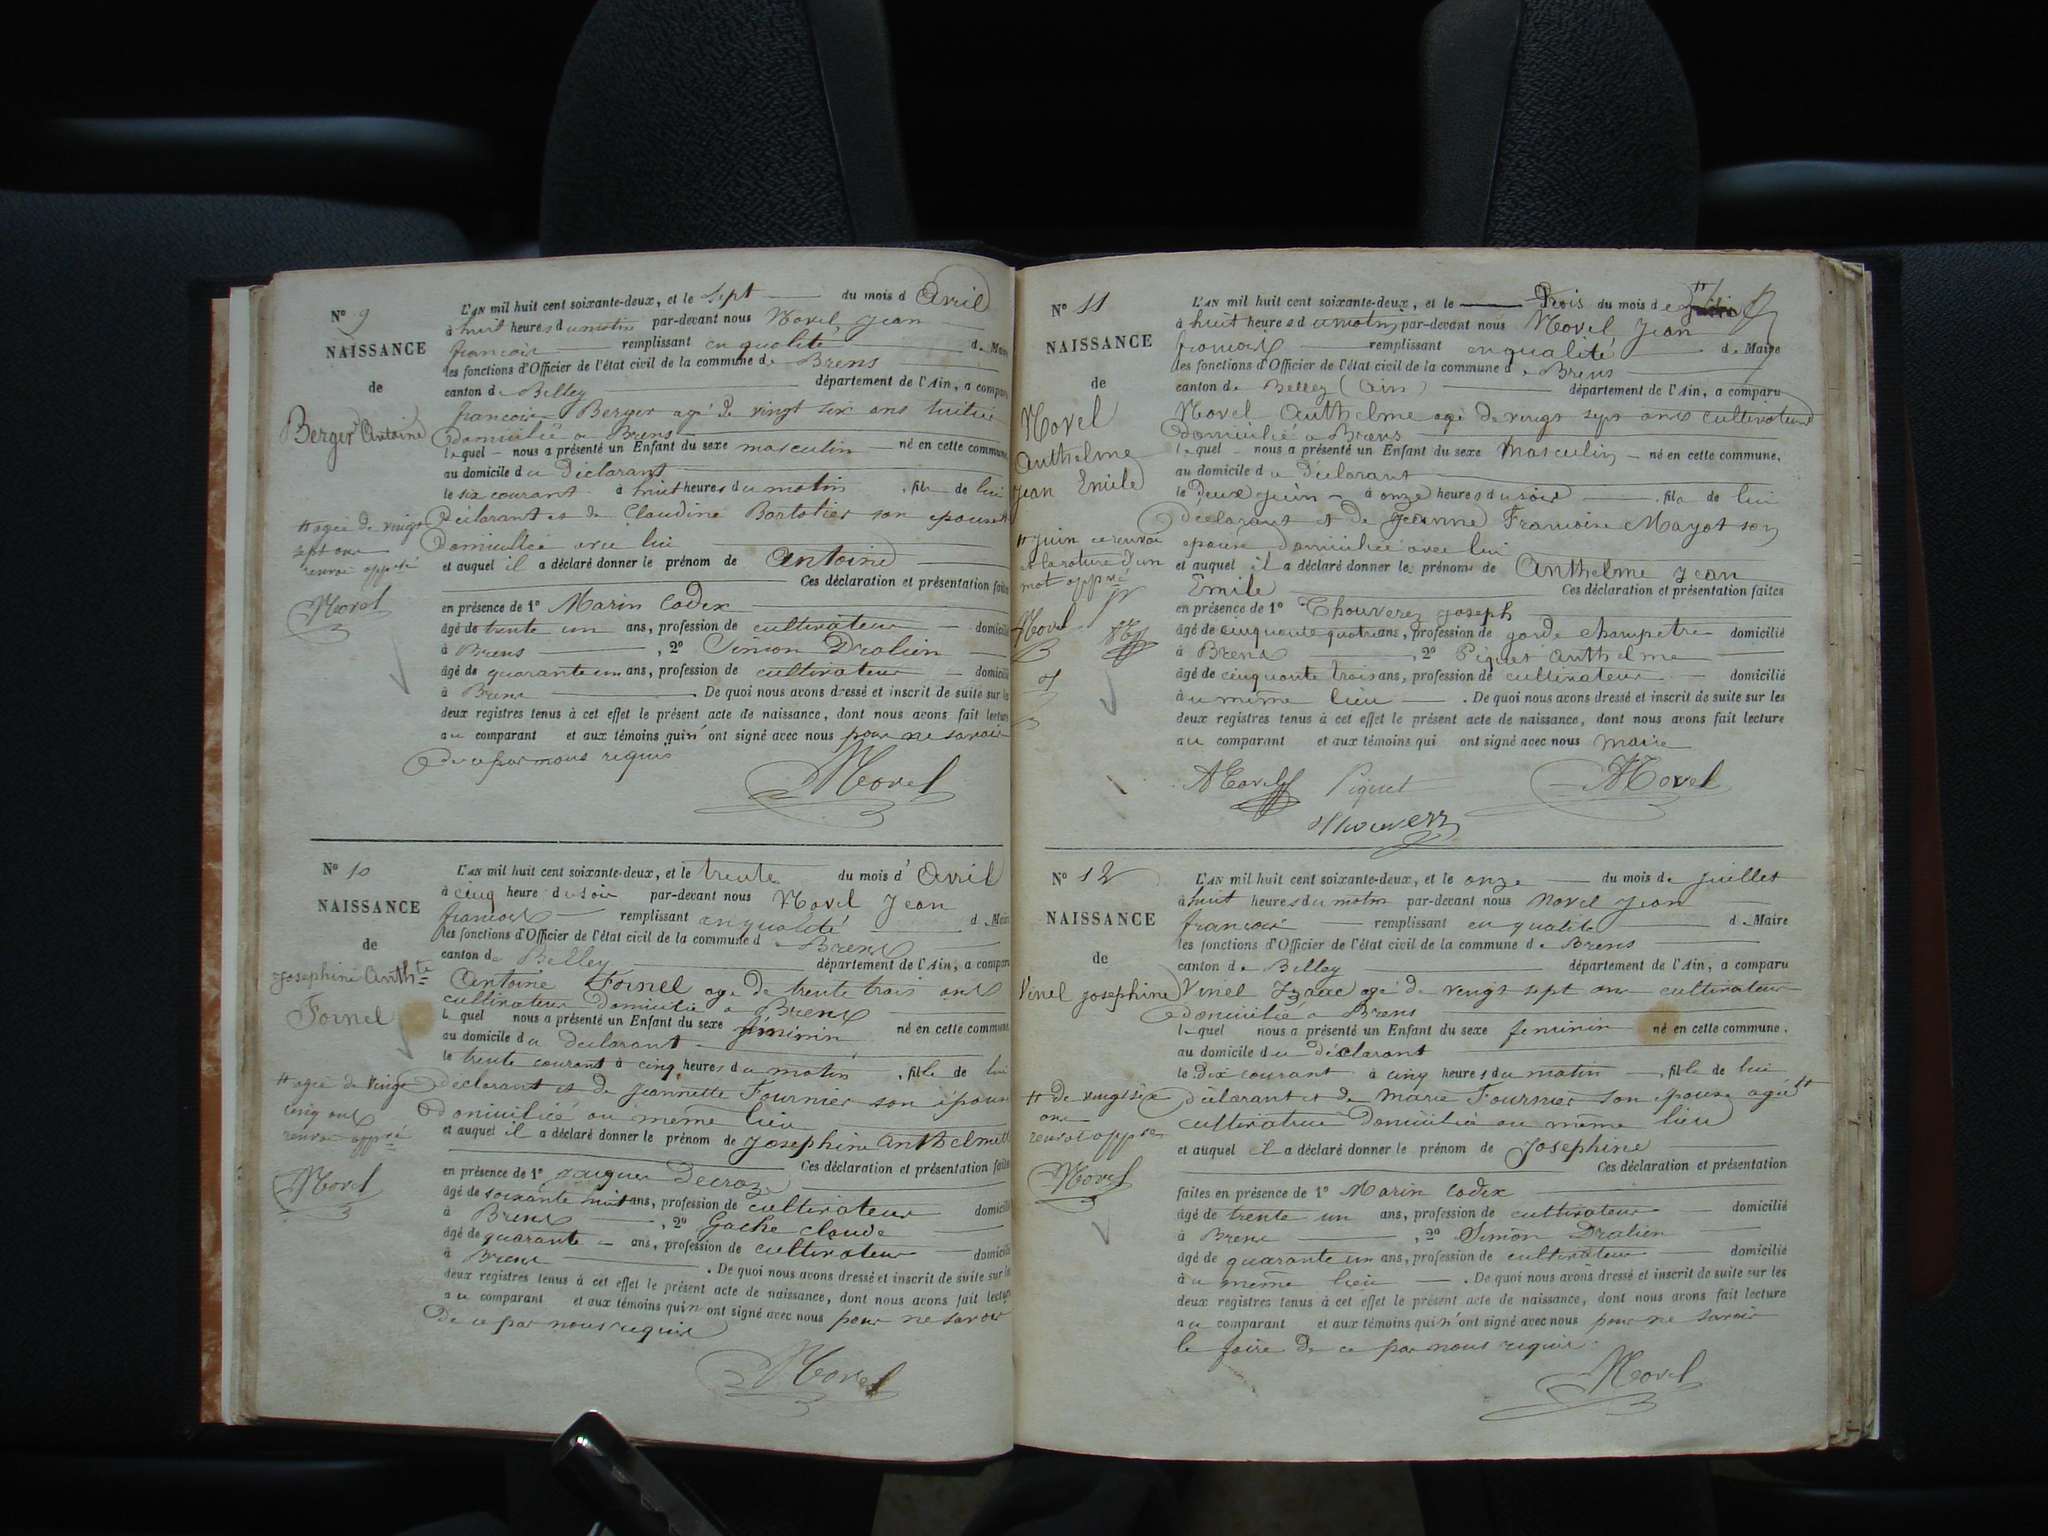 N° 9
NAISSANCE
de
Berger Antoine
L'AN mil huit cent soixante-deux, et le sept du mois d'Avril
à huit heures du matin par-devant nous Novel, Jean
francois remplissant en qualité de Maire
les fonctions d'Officier de l'état civil de la commune de Brens
canton de Belley département de l'Ain, a comparu
francois Berger agé de vingt six ans
domicilié a Brens
lequel nous a présenté un Enfant du sexe masculin né en cette commune,
au domicile du déclarant
le six courant à huit heures du matin, fils de lui
déclarant et de Claudine son epouse #
domiciliée avec lui
et auquel il a déclaré donner le prénom de Antoine
Ces déclaration et présentation faites
en présence de 1° Marin Codex
âgé de trente un ans, profession de cultivateur domicilié
à Brens, 2° Simon Dralien
âgé de quarante un ans, profession de cultivateur domicilié
à Brens. De quoi nous avons dressé et inscrit de suite sur les
deux registres tenus à cet effet le présent acte de naissance, dont nous avons fait lecture
au comparant et aux témoins qui n'ont signé avec nous pour ne savoir
de ce par nous requis
Novel
# agée de vingt
sept ans
renvoi appvé
Novel
N° 10
NAISSANCE
de
Josephine Anthte
Fornel
L'AN mil huit cent soixante-deux, et le trente du mois d'Avril
à cinq heure du soir par-devant nous Novel Jean
francois remplissant en qualité de Maire
les fonctions d'Officier de l'état civil de la commune de Brens
canton de Belley département de l'Ain, a comparu
Antoine Fornel age de trente trois ans
cultivateur domicilié a Brens
lequel nous a présenté un Enfant du sexe féminin né en cette commune,
au domicile du déclarant
le trente courant à cinq heures du matin, fille de lui
déclarant et de Jeannette Fournier son épouse
domiciliée au même lieu
et auquel il a déclaré donner le prénom de Josephine Anthelmette
Ces déclaration et présentation faites
en présence de 1° Jaques Decroze
âgé de soixante huit ans, profession de cultivateur domicilié
à Brens, 2° Gache claude
âgé de quarante ans, profession de cultivateur domicilié
à Brens. De quoi nous avons dressé et inscrit de suite sur les
deux registres tenus à cet effet le présent acte de naissance, dont nous avons fait lecture
au comparant et aux témoins qui n ont signé avec nous pour ne savoir
de ce par nous requis
Novel
# agée de vingt
cinq ans
renvoi appvé
Novel
N° 11
NAISSANCE
de
Novel
Anthelme
Jean Emile
L'AN mil huit cent soixante-deux, et le Trois du mois de #
à huit heures du matin par-devant nous Novel Jean
francois remplissant en qualité de Maire
les fonctions d'Officier de l'état civil de la commune de Brens
canton de Belley (Ain) département de l'Ain, a comparu
Novel Anthelme agé de vingt sept ans cultivateur
domicilié a Brens
lequel nous a présenté un Enfant du sexe Masculin né en cette commune,
au domicile du déclarant
le deux juin à onze heures du soir, fils de lui
déclarant et de Jeanne Francoise Mayot son
epouse domiciliée avec lui
et auquel il a déclaré donner les prénoms de Anthelme Jean
Emile Ces déclaration et présentation faites
en présence de 1° Thouverez joseph
âgé de cinquante quatre ans, profession de garde champetre domicilié
à Brens, 2° Piquet Anthelme
âgé de cinquante trois ans, profession de cultivateur domicilié
à u même lieu. De quoi nous avons dressé et inscrit de suite sur les
deux registres tenus à cet effet le présent acte de naissance, dont nous avons fait lecture
au comparant et aux témoins qui ont signé avec nous maire
A Novel Piquet Novel
Thouverez
# juin ce renvoi
et la rature d'un
mot appvé
Novel
N° 12
NAISSANCE
de
Vinel josephine
L'AN mil huit cent soixante-deux, et le onze du mois de juillet
à huit heures du matin par-devant nous Novel Jean
francois remplissant en qualité de Maire
les fonctions d'Officier de l'état civil de la commune de Brens
canton de Belley département de l'Ain, a comparu
Vinel Izaac agé de vingt sept ans cultivateur
domicilié a Brens
lequel nous a présenté un Enfant du sexe feminin né en cette commune,
au domicile du déclarant
le dix courant à cinq heures du matin, fille de lui
déclarant et de Marie Fournier son epouse agée #
cultivatrice domiciliée au même lieu
et auquel il a déclaré donner le prénom de Josephine
Ces déclaration et présentation
faites en présence de 1° Marin Codex
âgé de trente un ans, profession de cultivateur domicilié
à Brens, 2° Simon Dralien
âgé de quarante un ans, profession de cultivateur domicilié
à u même lieu. De quoi nous avons dressé et inscrit de suite sur les
deux registres tenus à cet effet le présent acte de naissance, dont nous avons fait lecture
au comparant et aux témoins qui n'ont signé avec nous pour ne savoir
le faire de ce par nous requis
Novel
# de vingt six
ans
renvoi appvé
Novel